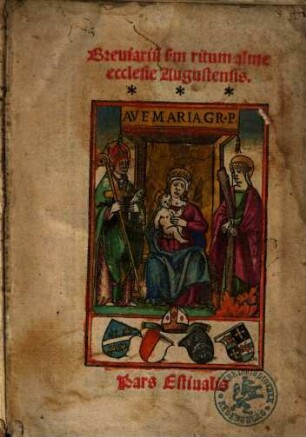 Breuariu ſm ritum alme
eccleſie Auguſtenſis.
* * *
AVE MARIA GR · P
Pars Eſtiualis